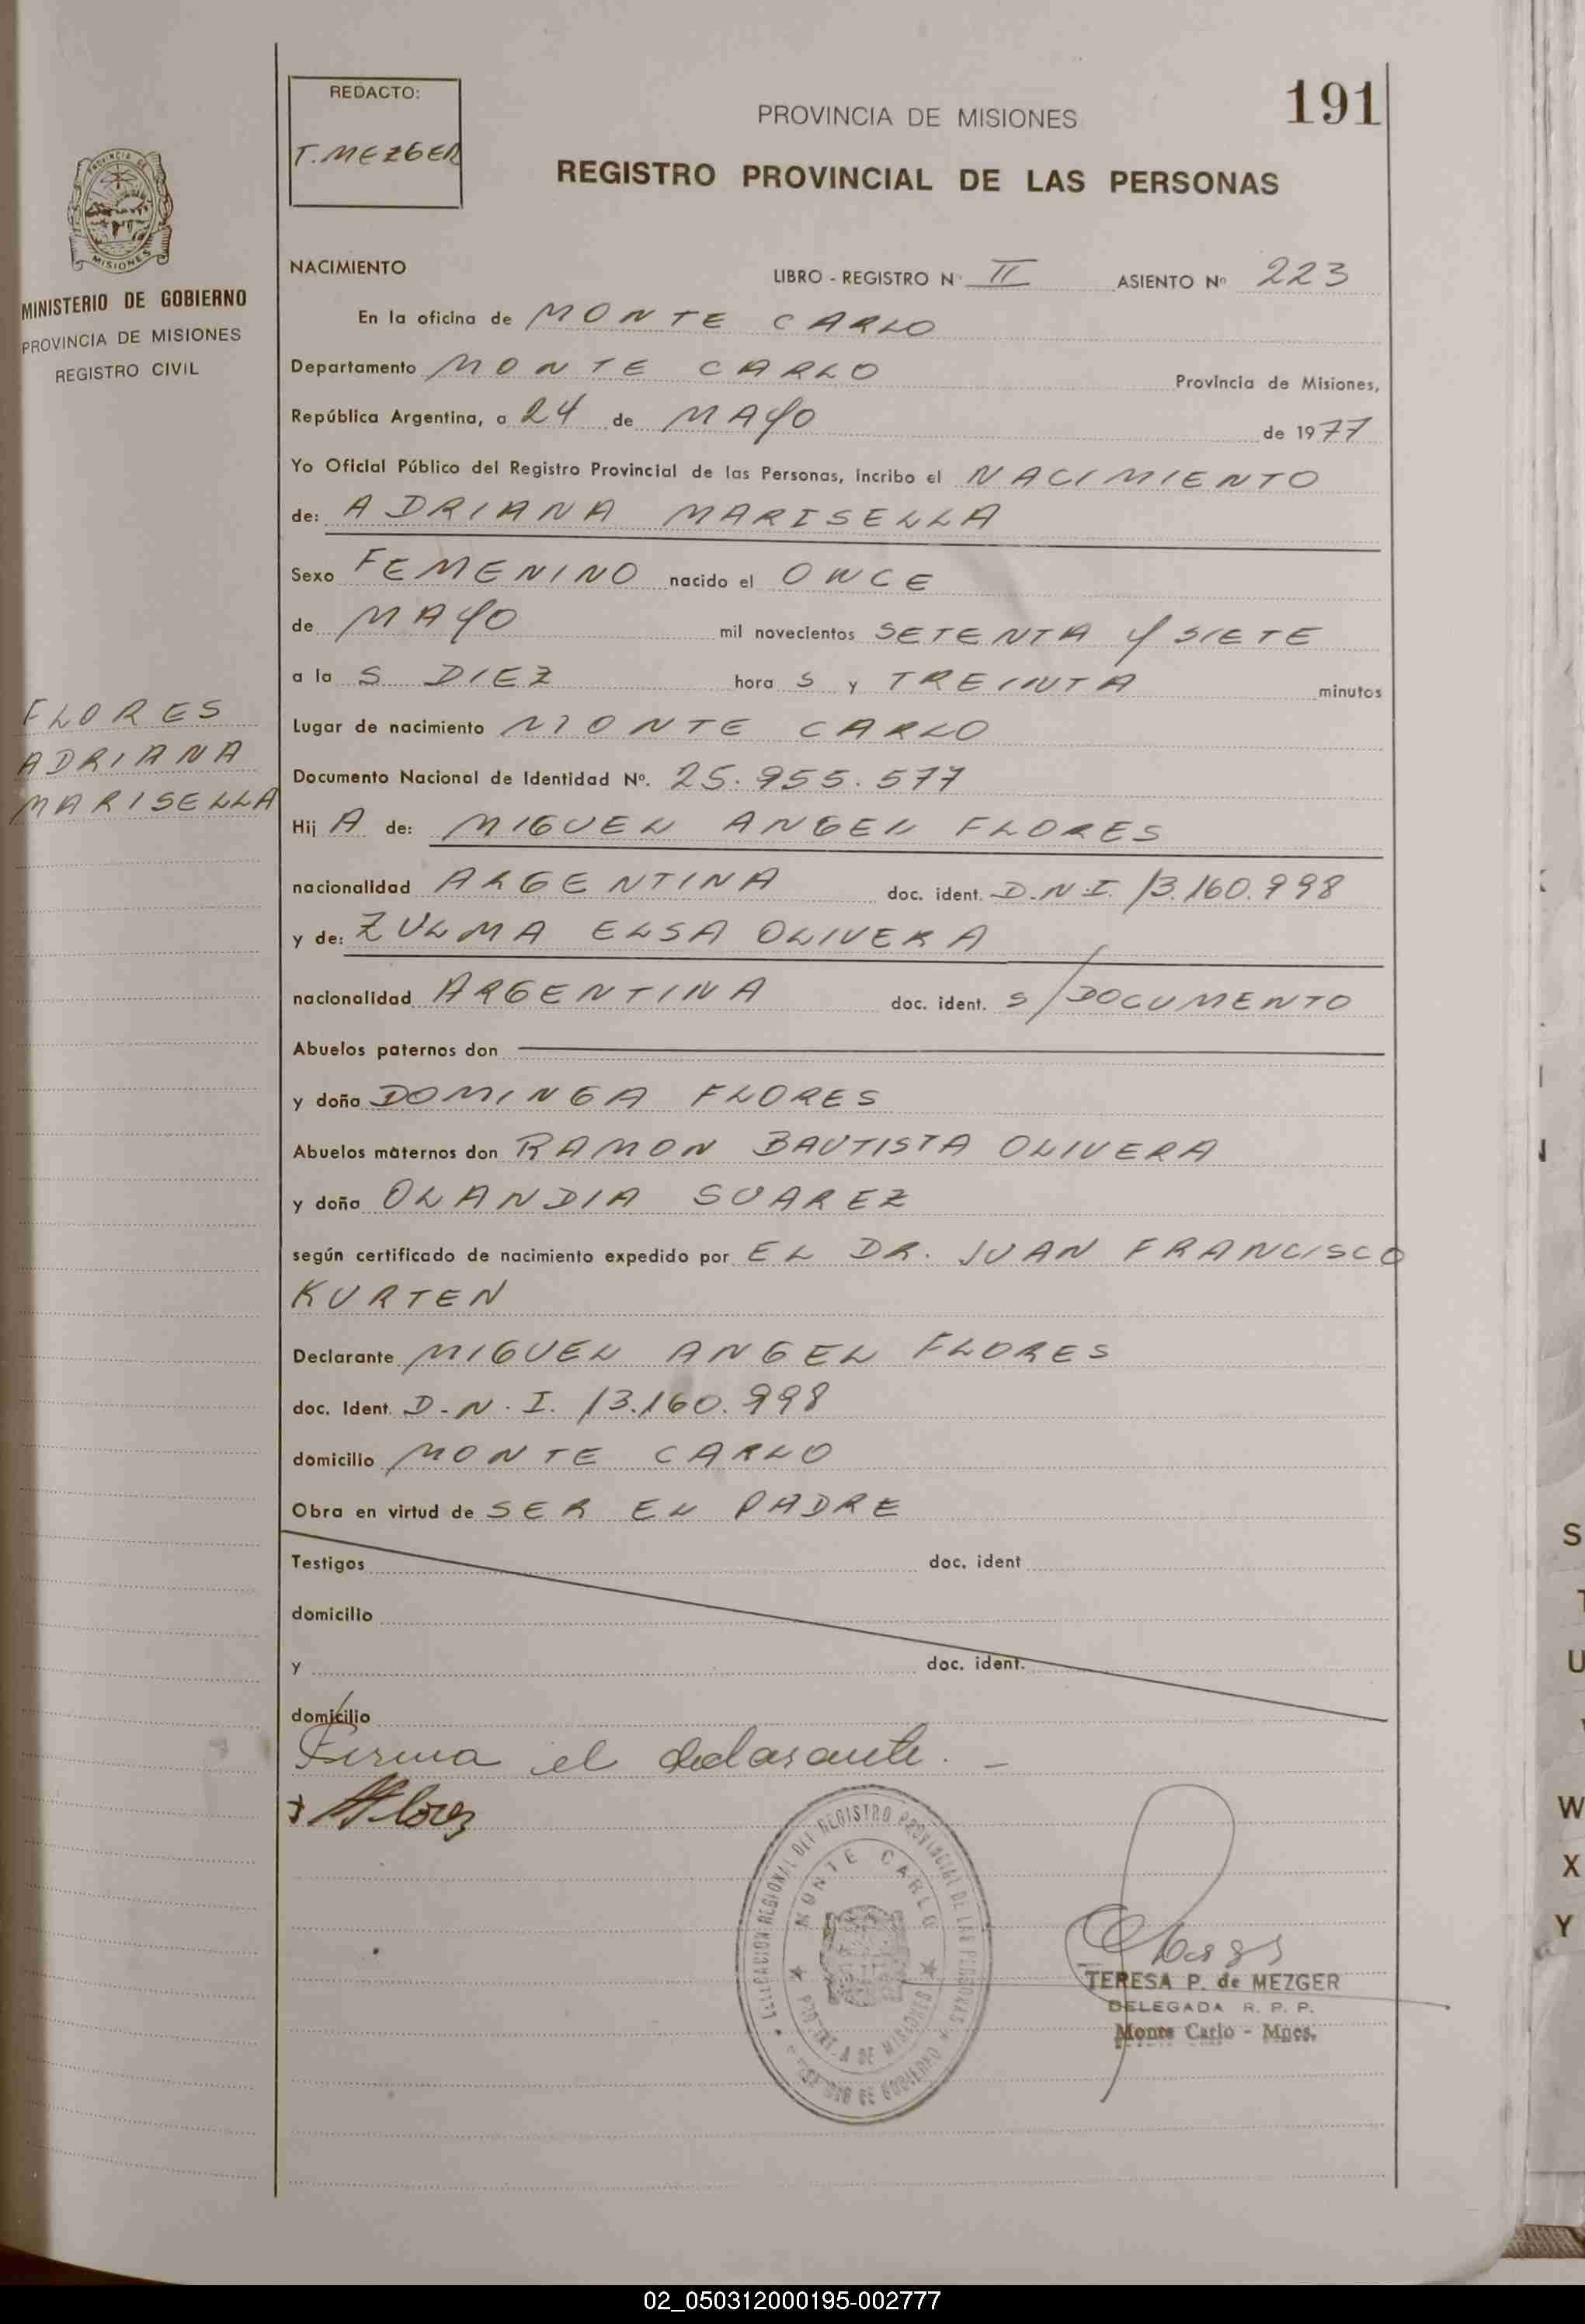 191
REDACTO:
T. MEZGER
PROVINCIA DE MISIONES
REGISTRO PROVINCIAL DE LAS PERSONAS
PROVINCIA DE
MISIONES
MINISTERIO DE GOBIERNO
PROVINCIA DE MISIONES
REGISTRO CIVIL
NACIMIENTO LIBRO - REGISTRO Nº II ASIENTO Nº 223
En la oficina de MONTE CARLO
Departamento MONTE CARLO Provincia de Misiones,
República Argentina, a 24 de MAYO de 1977
Yo Oficial Público del Registro Provincial de las Personas, incribo el NACIMIENTO
de: ADRIANA MARISELLA
Sexo FEMENINO nacido el ONCE
de MAYO mil novecientos SETENTA Y SIETE
a la S DIEZ hora S y TREINTA minutos
FLORES
ADRIANA
MARISELLA
Lugar de nacimiento MONTE CARLO
Documento Nacional de Identidad Nº. 25.955.577
Hij A de: MIGUEL ANGEL FLORES
nacionalidad ARGENTINA doc. ident. D.N.I. 13.160.998
y de: ZULMA ELSA OLIVERA
nacionalidad ARGENTINA doc. ident. S/DOCUMENTO
Abuelos paternos don
y doña DOMINGA FLORES
Abuelos maternos don RAMON BAUTISTA OLIVERA
y doña OLANDIA SUAREZ
según certificado de nacimiento expedido por EL DR. JUAN FRANCISCO
KURTEN
Declarante MIGUEL ANGEL FLORES
doc. Ident. D.N.I. 13.160.998
domicilio MONTE CARLO
Obra en virtud de SER EL PADRE
Testigos doc. ident
domicilio
y doc. ident.
domicilio
Firma el declarante. -
Flores
DELEGACION REGIONAL DEL REGISTRO PROVINCIAL DE LAS PERSONAS
MONTE CARLO
DE MISIONES
DE GOBIERNO
TERESA P. de MEZGER
DELEGADA R. P. P.
Monte Carlo - Mnes.
S
U
W
X
Y
02_050312000195-002777